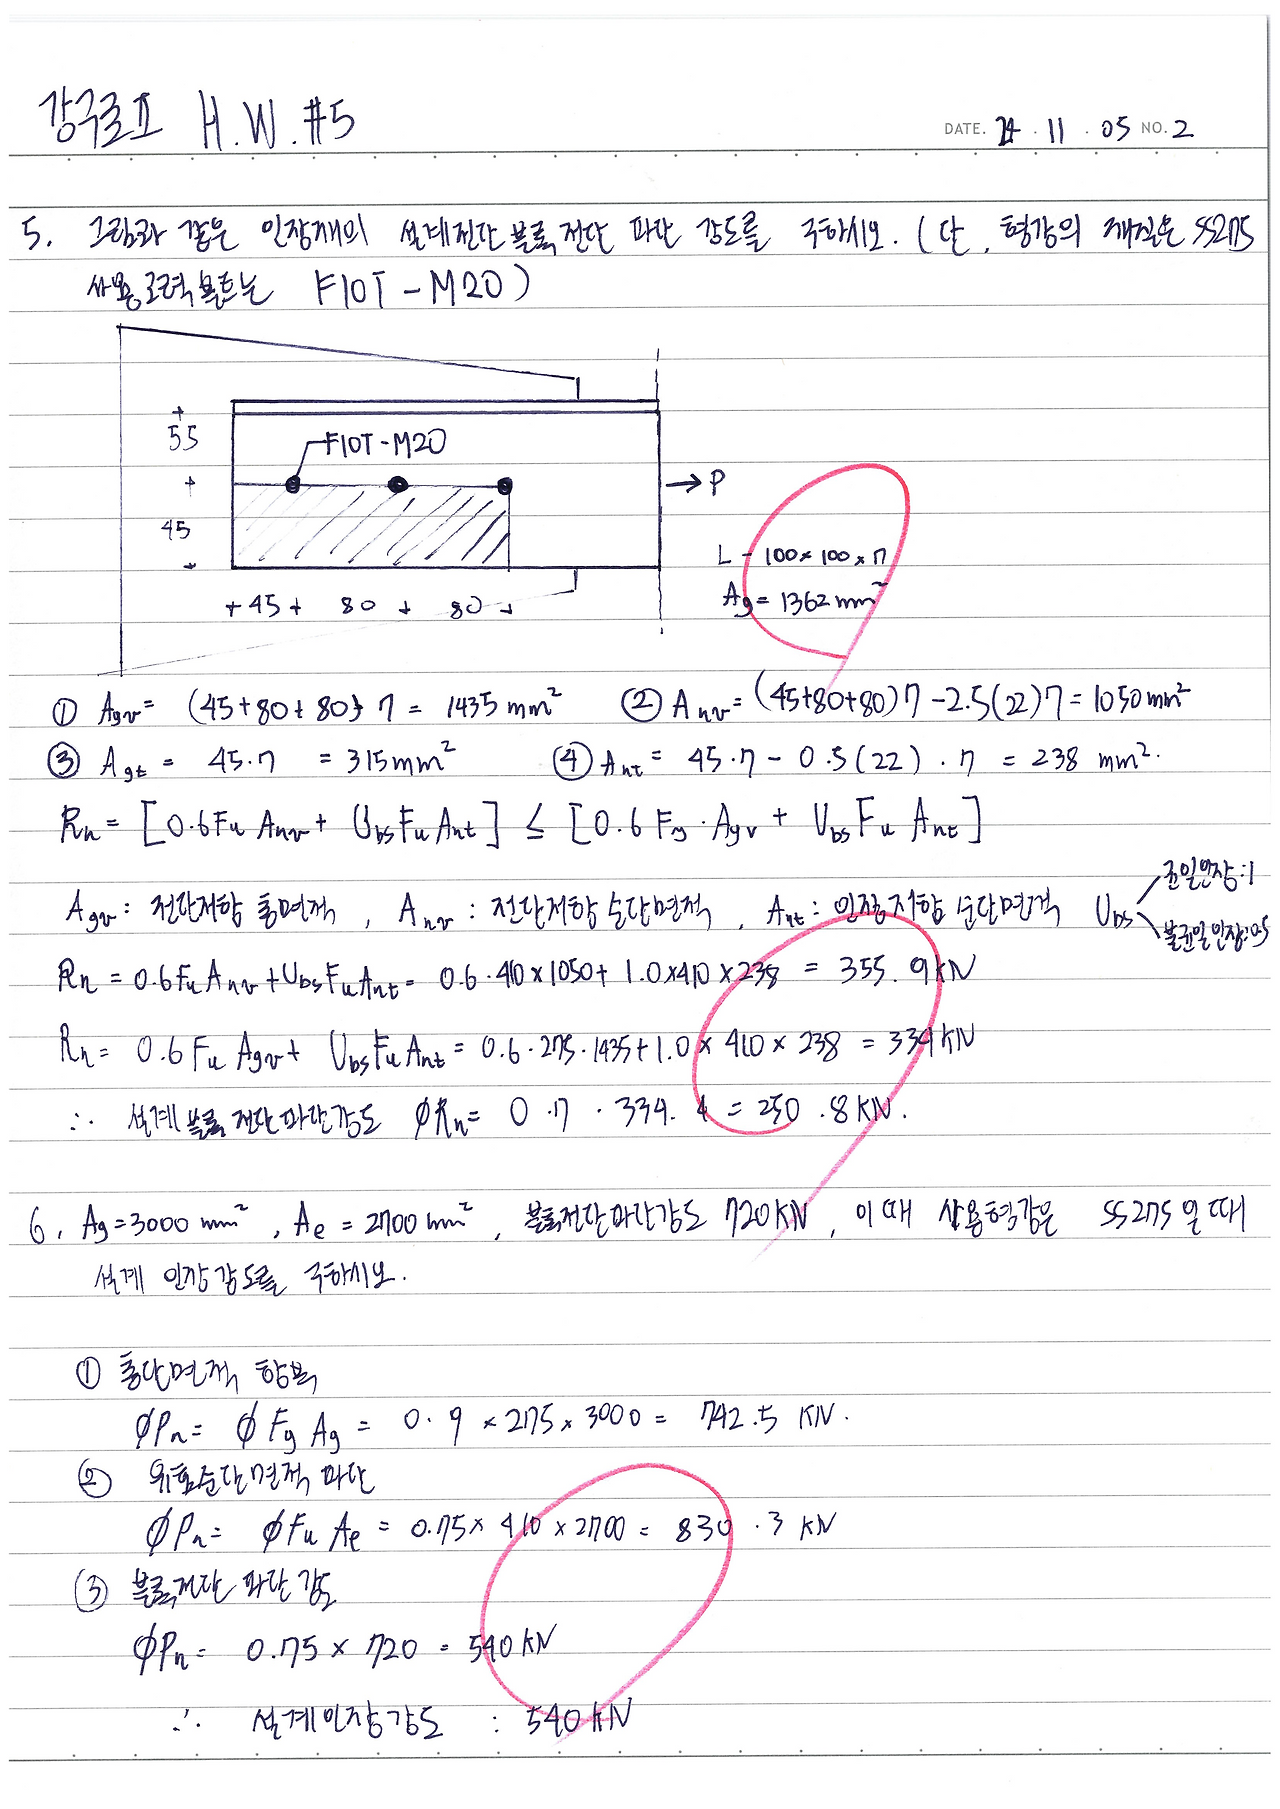 강구조Ⅱ H.W.#5
DATE. 24 . 11 . 05 NO. 2
5. 그림과 같은 인장재의 설계전단블록전단 파단 강도를 구하시오. (단, 형강의 재질은 SS275
사용고력볼트는 F10T-M20)
55
F10T-M20
→ P
45
L - 100 × 100 × 7
Ag = 1362 mm²
45 80 80
① Agv = (45+80+80) 7 = 1435 mm² ② Anv = (45+80+80)7 - 2.5(22)7 = 1050 mm²
③ Agt = 45·7 = 315 mm² ④ Ant = 45·7 - 0.5(22)·7 = 238 mm².
Rn = [0.6Fu Anv + Ubs Fu Ant] ≤ [0.6 Fy·Agv + Ubs Fu Ant]
균일인장:1
Agv : 전단저항 총면적, Anv : 전단저항 순단면적, Ant : 인장저항 순단면적 Ubs
불균일인장:0.5
Rn = 0.6Fu Anv + Ubs Fu Ant = 0.6·410×1050 + 1.0×410×238 = 355.9 KN
Rn = 0.6 Fu Agv + Ubs Fu Ant = 0.6·275·1435 + 1.0 × 410 × 238 = 334 KN
∴ 설계블록전단파단강도 ϕRn = 0.7 · 334.4 = 250.8 KN.
6. Ag = 3000 mm², Ae = 2700 mm², 블록전단파단강도 720KN, 이때 사용형강은 SS275일때
설계 인장강도를 구하시오.
① 총단면적 항복
ϕPn = ϕ Fy Ag = 0.9 × 275 × 3000 = 742.5 KN.
② 유효순단면적 파단
ϕPn = ϕFu Ae = 0.75 × 410 × 2700 = 830.3 KN
③ 블록전단 파단 강도
ϕPn = 0.75 × 720 = 540 KN
∴ 설계인장강도 : 540 KN